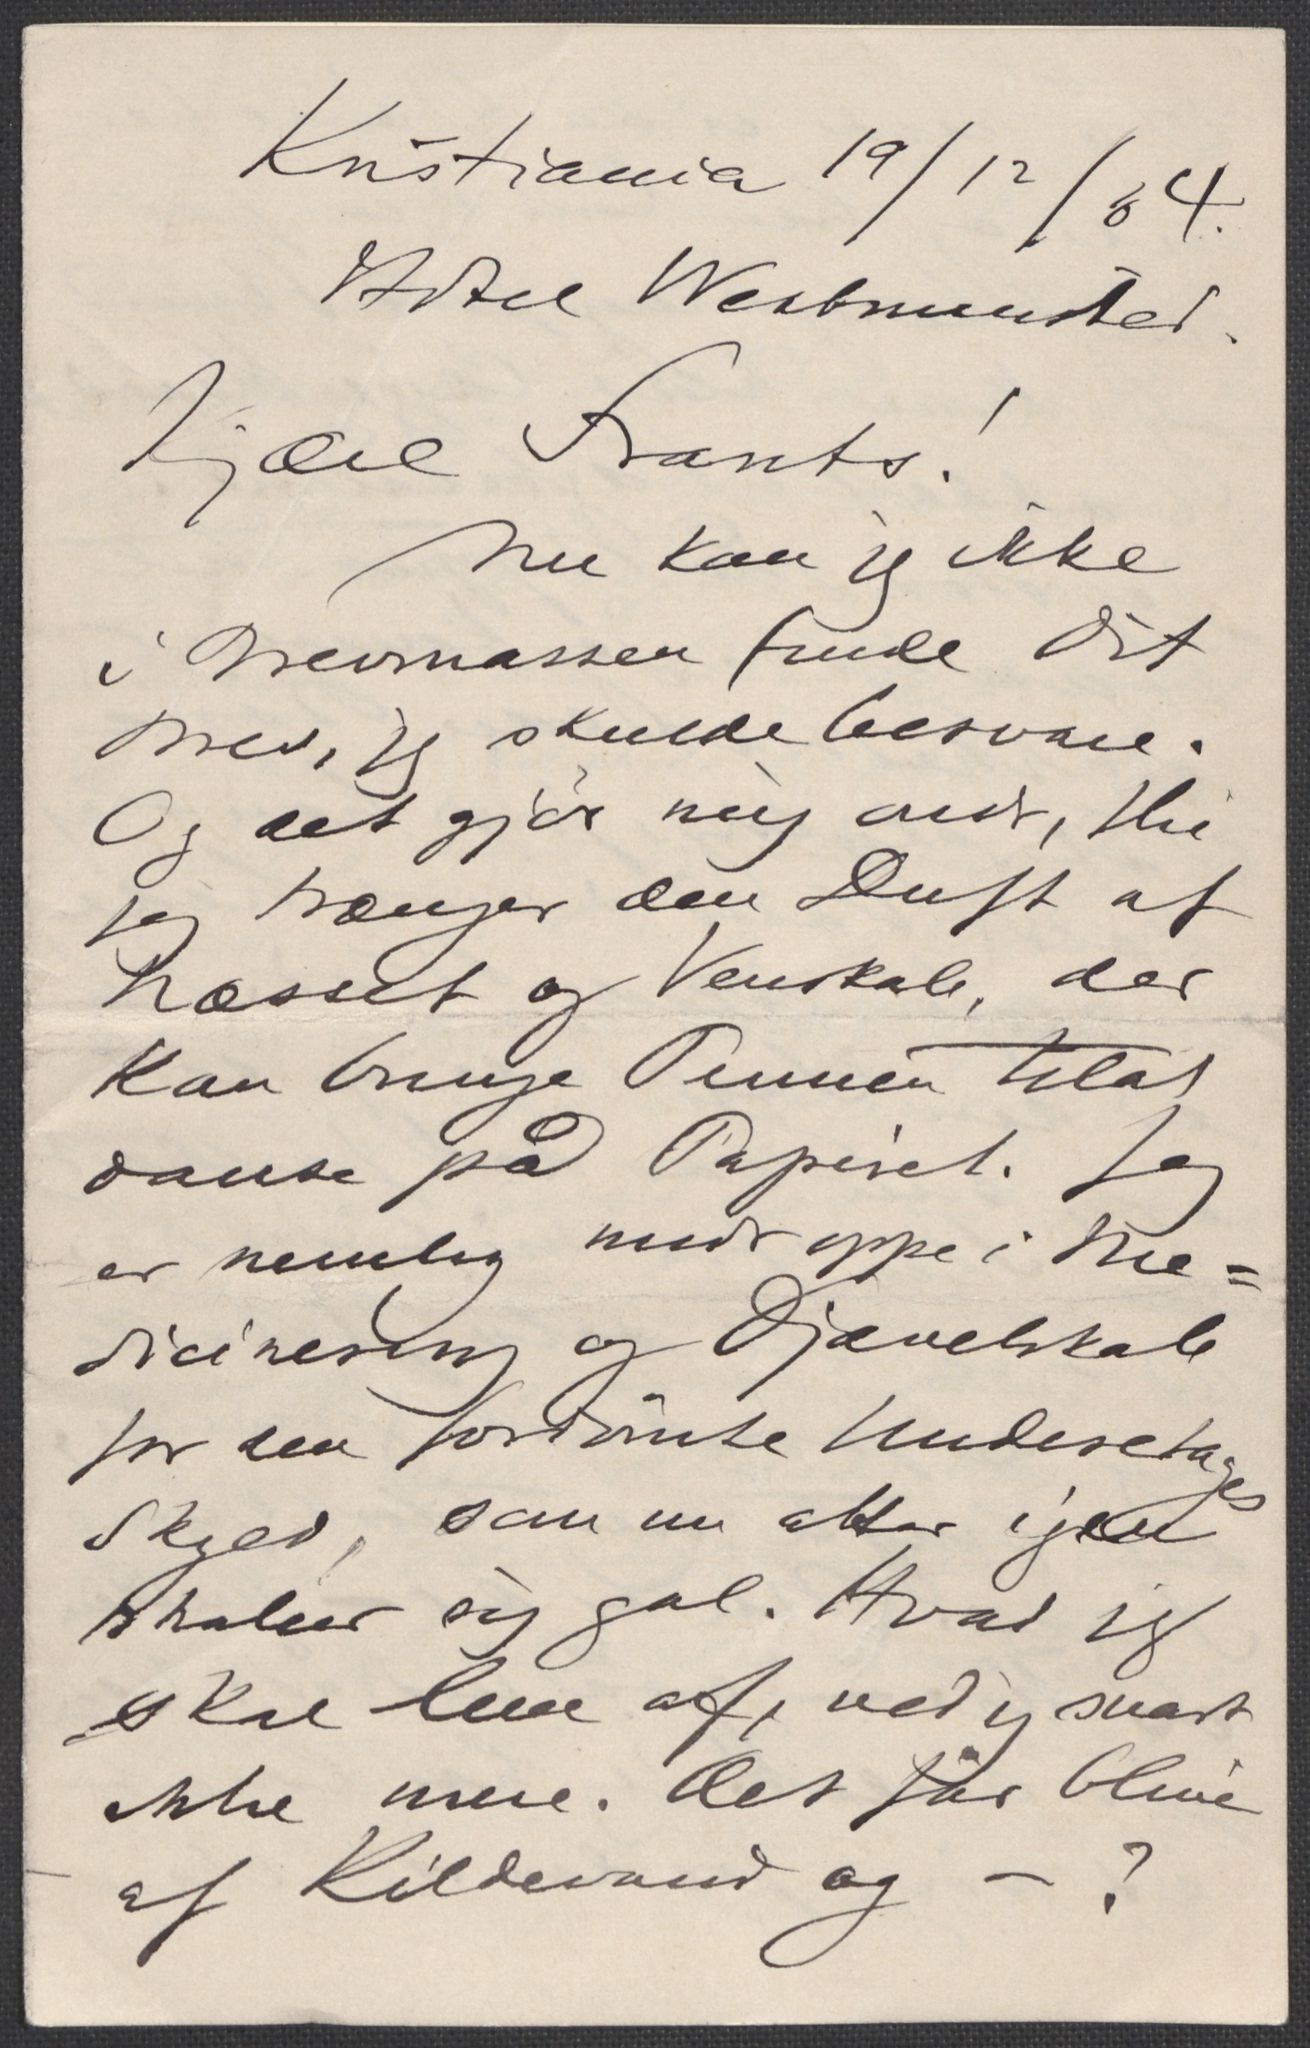 Kristiania 19/12/04.
Hôtel Westminster.
Kjære Frants!
Nu kan jeg ikke
i Brevmassen finde Dit
Brev, jeg skulde besvare.
Og det gjør mig ondt, thi
jeg trænger den Duft af
Næsset og Venskab, der
kan bringe Pennen til at
danse på Papiret. Jeg
er nemlig midt oppe i Me=
dicinering og Djævelskab
for den fordömte Underetages
Skyld, som nu atter igjen
skaber sig gal. Hvad jeg
skal leve af, ved jeg snart
ikke mere. Det får blive
af Kildevand og – ?